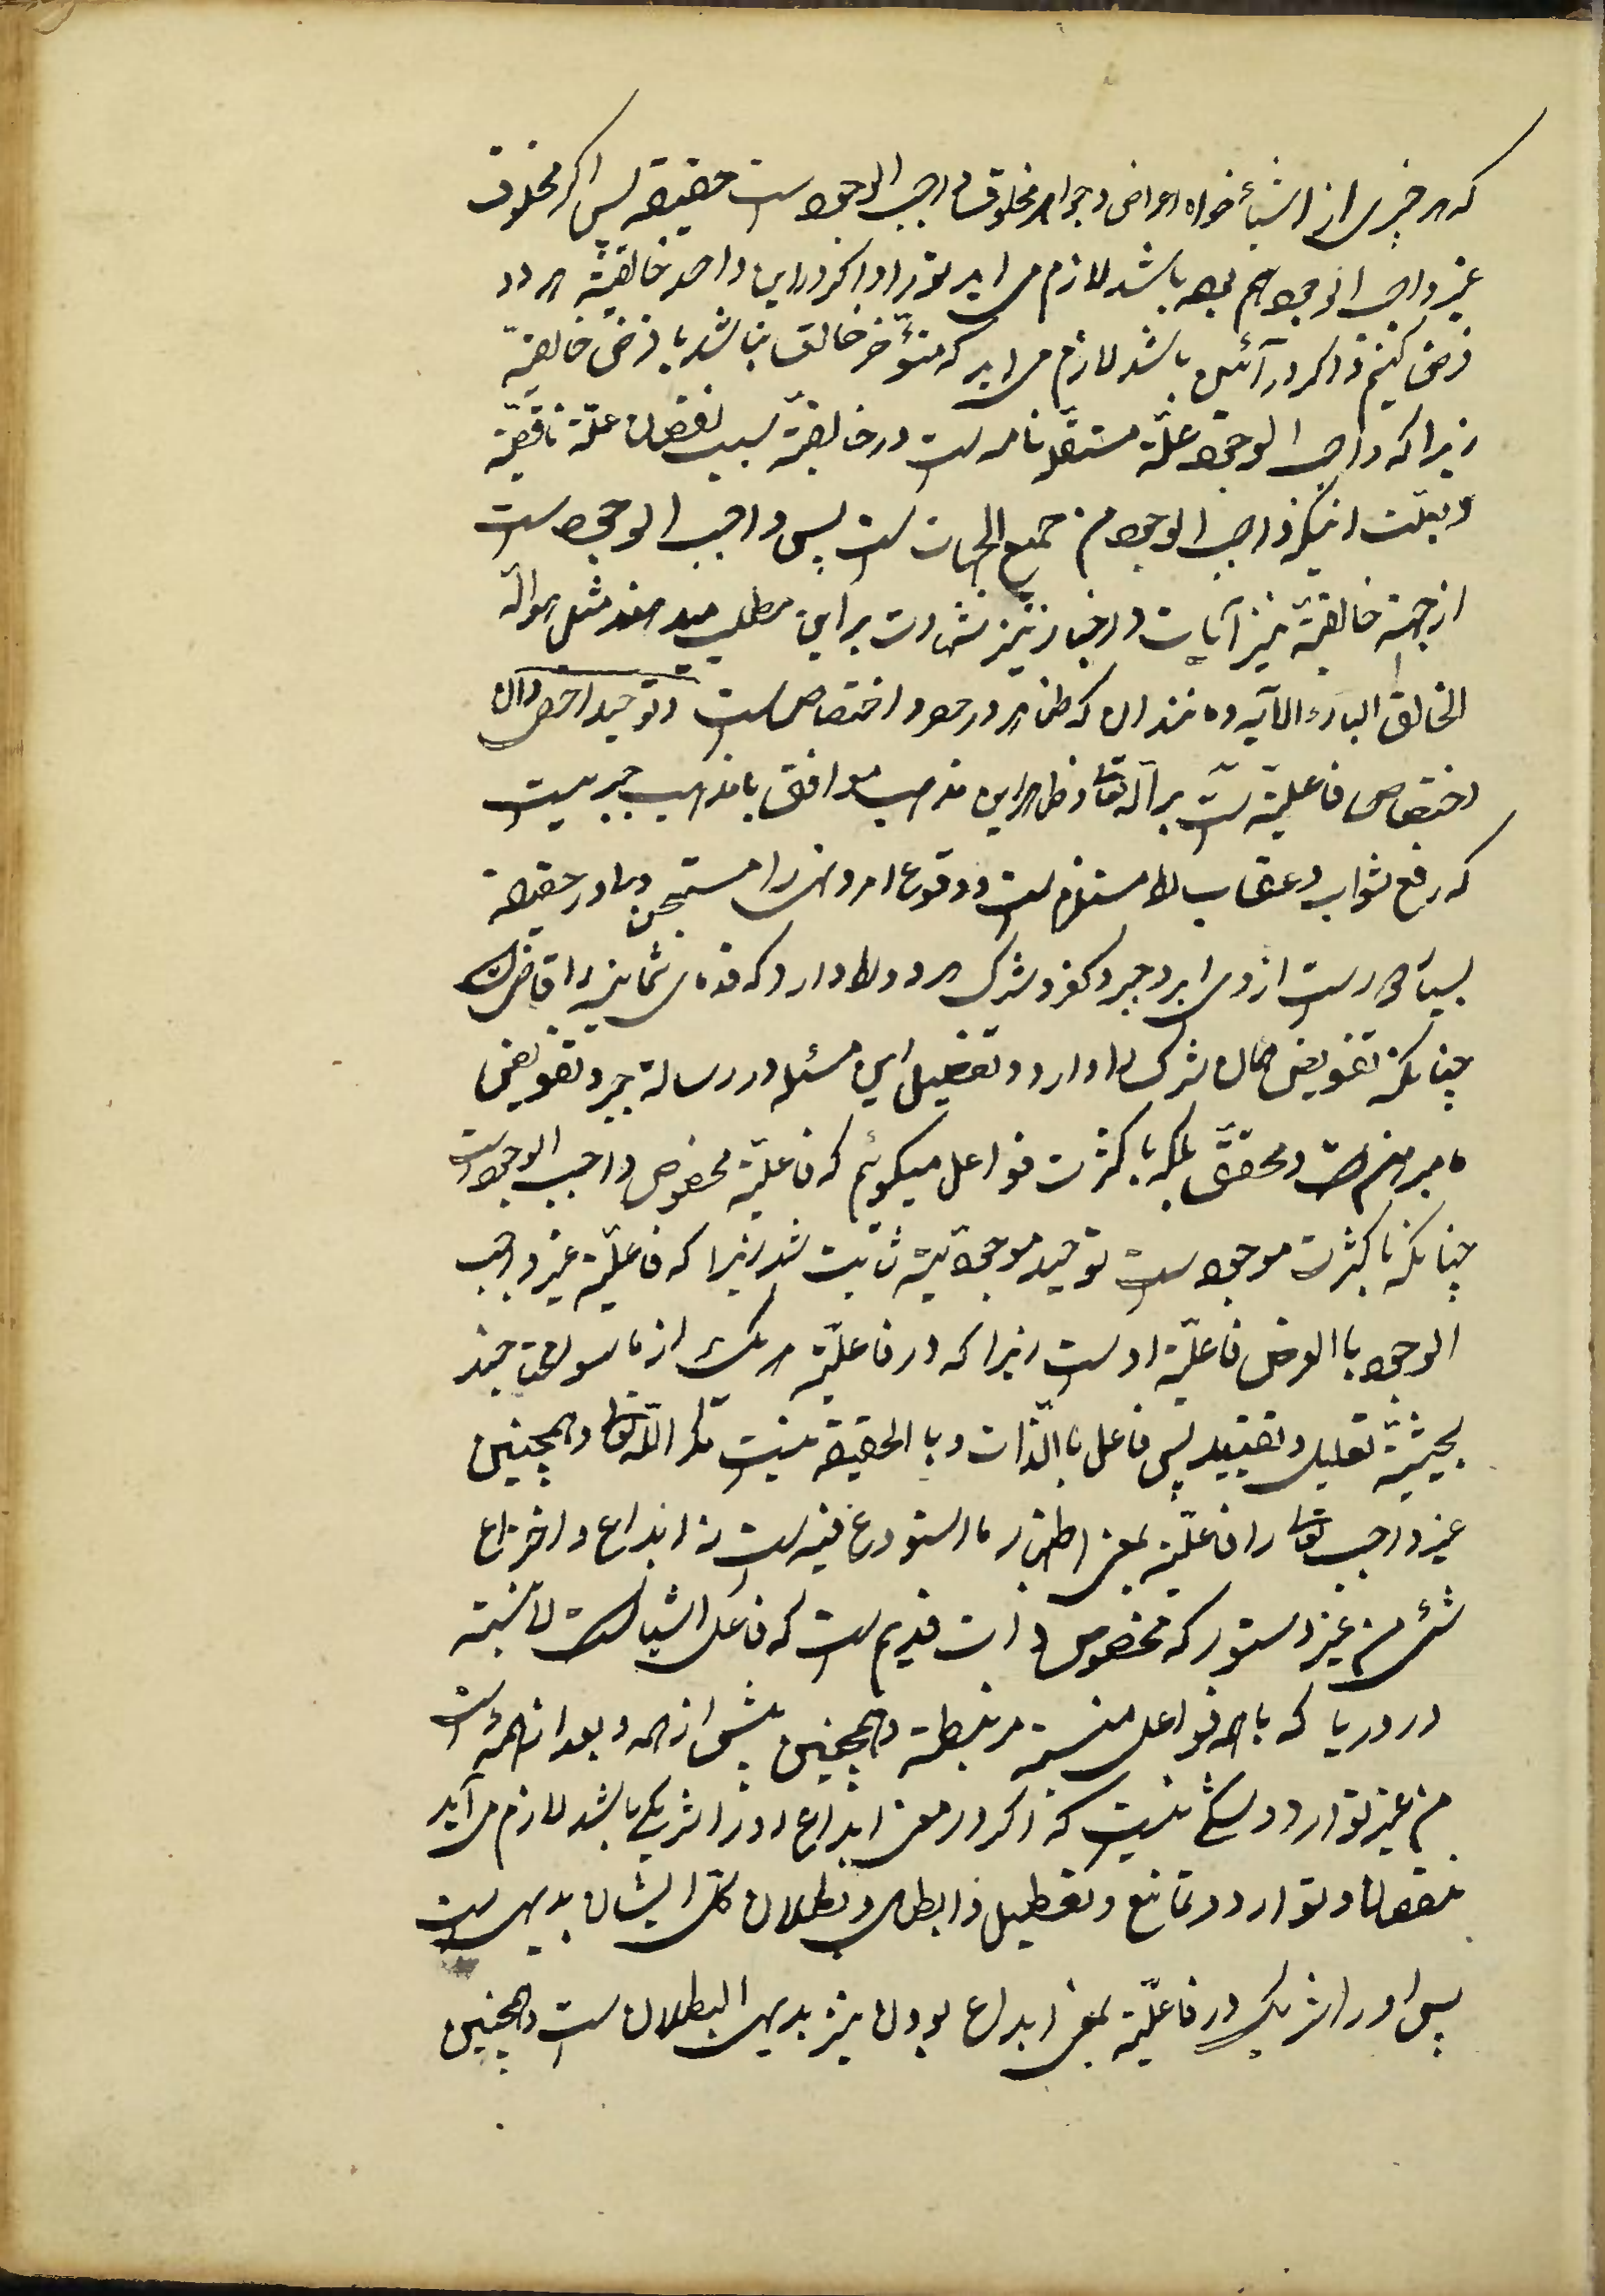 که هر چیزی از اشیاء خواه اعراض و جواهر مخلوق واجب الوجود ست حقیقه پس اگر مخلوق
غیر واجب الوجود هم بوده باشد لازم می اید توارد اگر در این واحد خالقیّة هر دو
فرض کنیم و اگر در آنین باشد لازم می اید که متؤخر خالق نباشد با فرض خالقیّة
زیرا که واجب الوجود علّة مستقلّه تامه است در خالقیّة بسبب نقصان علّة ناقصة
و بعلّت اینکه واجب الوجود من جمیع الجهات است پس واجب الوجود ست
از جهة خالقیّة نیز آیات و اخبار نیز شهادت بر این مطلب میدهند مثل هو الله
الخالق البارء الآیه و مانند ان که ظاهر در حصر و اختصاص است و توحید اخص از ان
اختصاص فاعلیّة است بر الله تعالی و ظاهر این مذهب موافق با مذهب جبریست
که رفع ثواب و عقاب را مستلزم است و وقوع امر و نهی را مستهجن و اما در حقیقة
بسیار دور است از وی ابر و جبر و کفر و شرک هر دو را دارد که
چنانکه تفویض همان شرک را دارد و تفصیل این مسئله در رسالة جبر و تفویض
ما مبرهن است و محقّق بلکه با کثرت فواعل میگوئیم که فاعلیّة مخصوص واجب الوجود است
چنانکه با کثرت موجود ست توحید موجودیّة ثابت شد زیرا که فاعلیّة غیر واجب
الوجود با العرض فاعلیّة اوست زیرا که در فاعلیّة هر یک از ما سوا محتاجند
بحیثیّة تعلیل و تقیید پس فاعل با الذّات و با الحقیقة نیست مگر اللّه تعالی و همچنین
غیر واجب تعالی را فاعلیّة بمعنی اظهار ما استودع فیه است نه ابداع و اختراع
شئ من غیر دستور که مخصوص ذات قدیم است که فاعل اشیا است لا نسبة
در دریا که با همه فواعل منسبة مرتبطة و همچنین پیش از همه و بعد از همه است
من غیر توارد و شکّی نیست که اگر در معنی ابداع او را شریکی باشد لازم می آید
نقصان و توارد و تمانع و تعطیل و ابطال و بطلان کلّ ایشان بدیهی است
پس او را شریک در فاعلیّة بمعنی ابداع بودن نیز بدیهی البطلان ست و همچنین